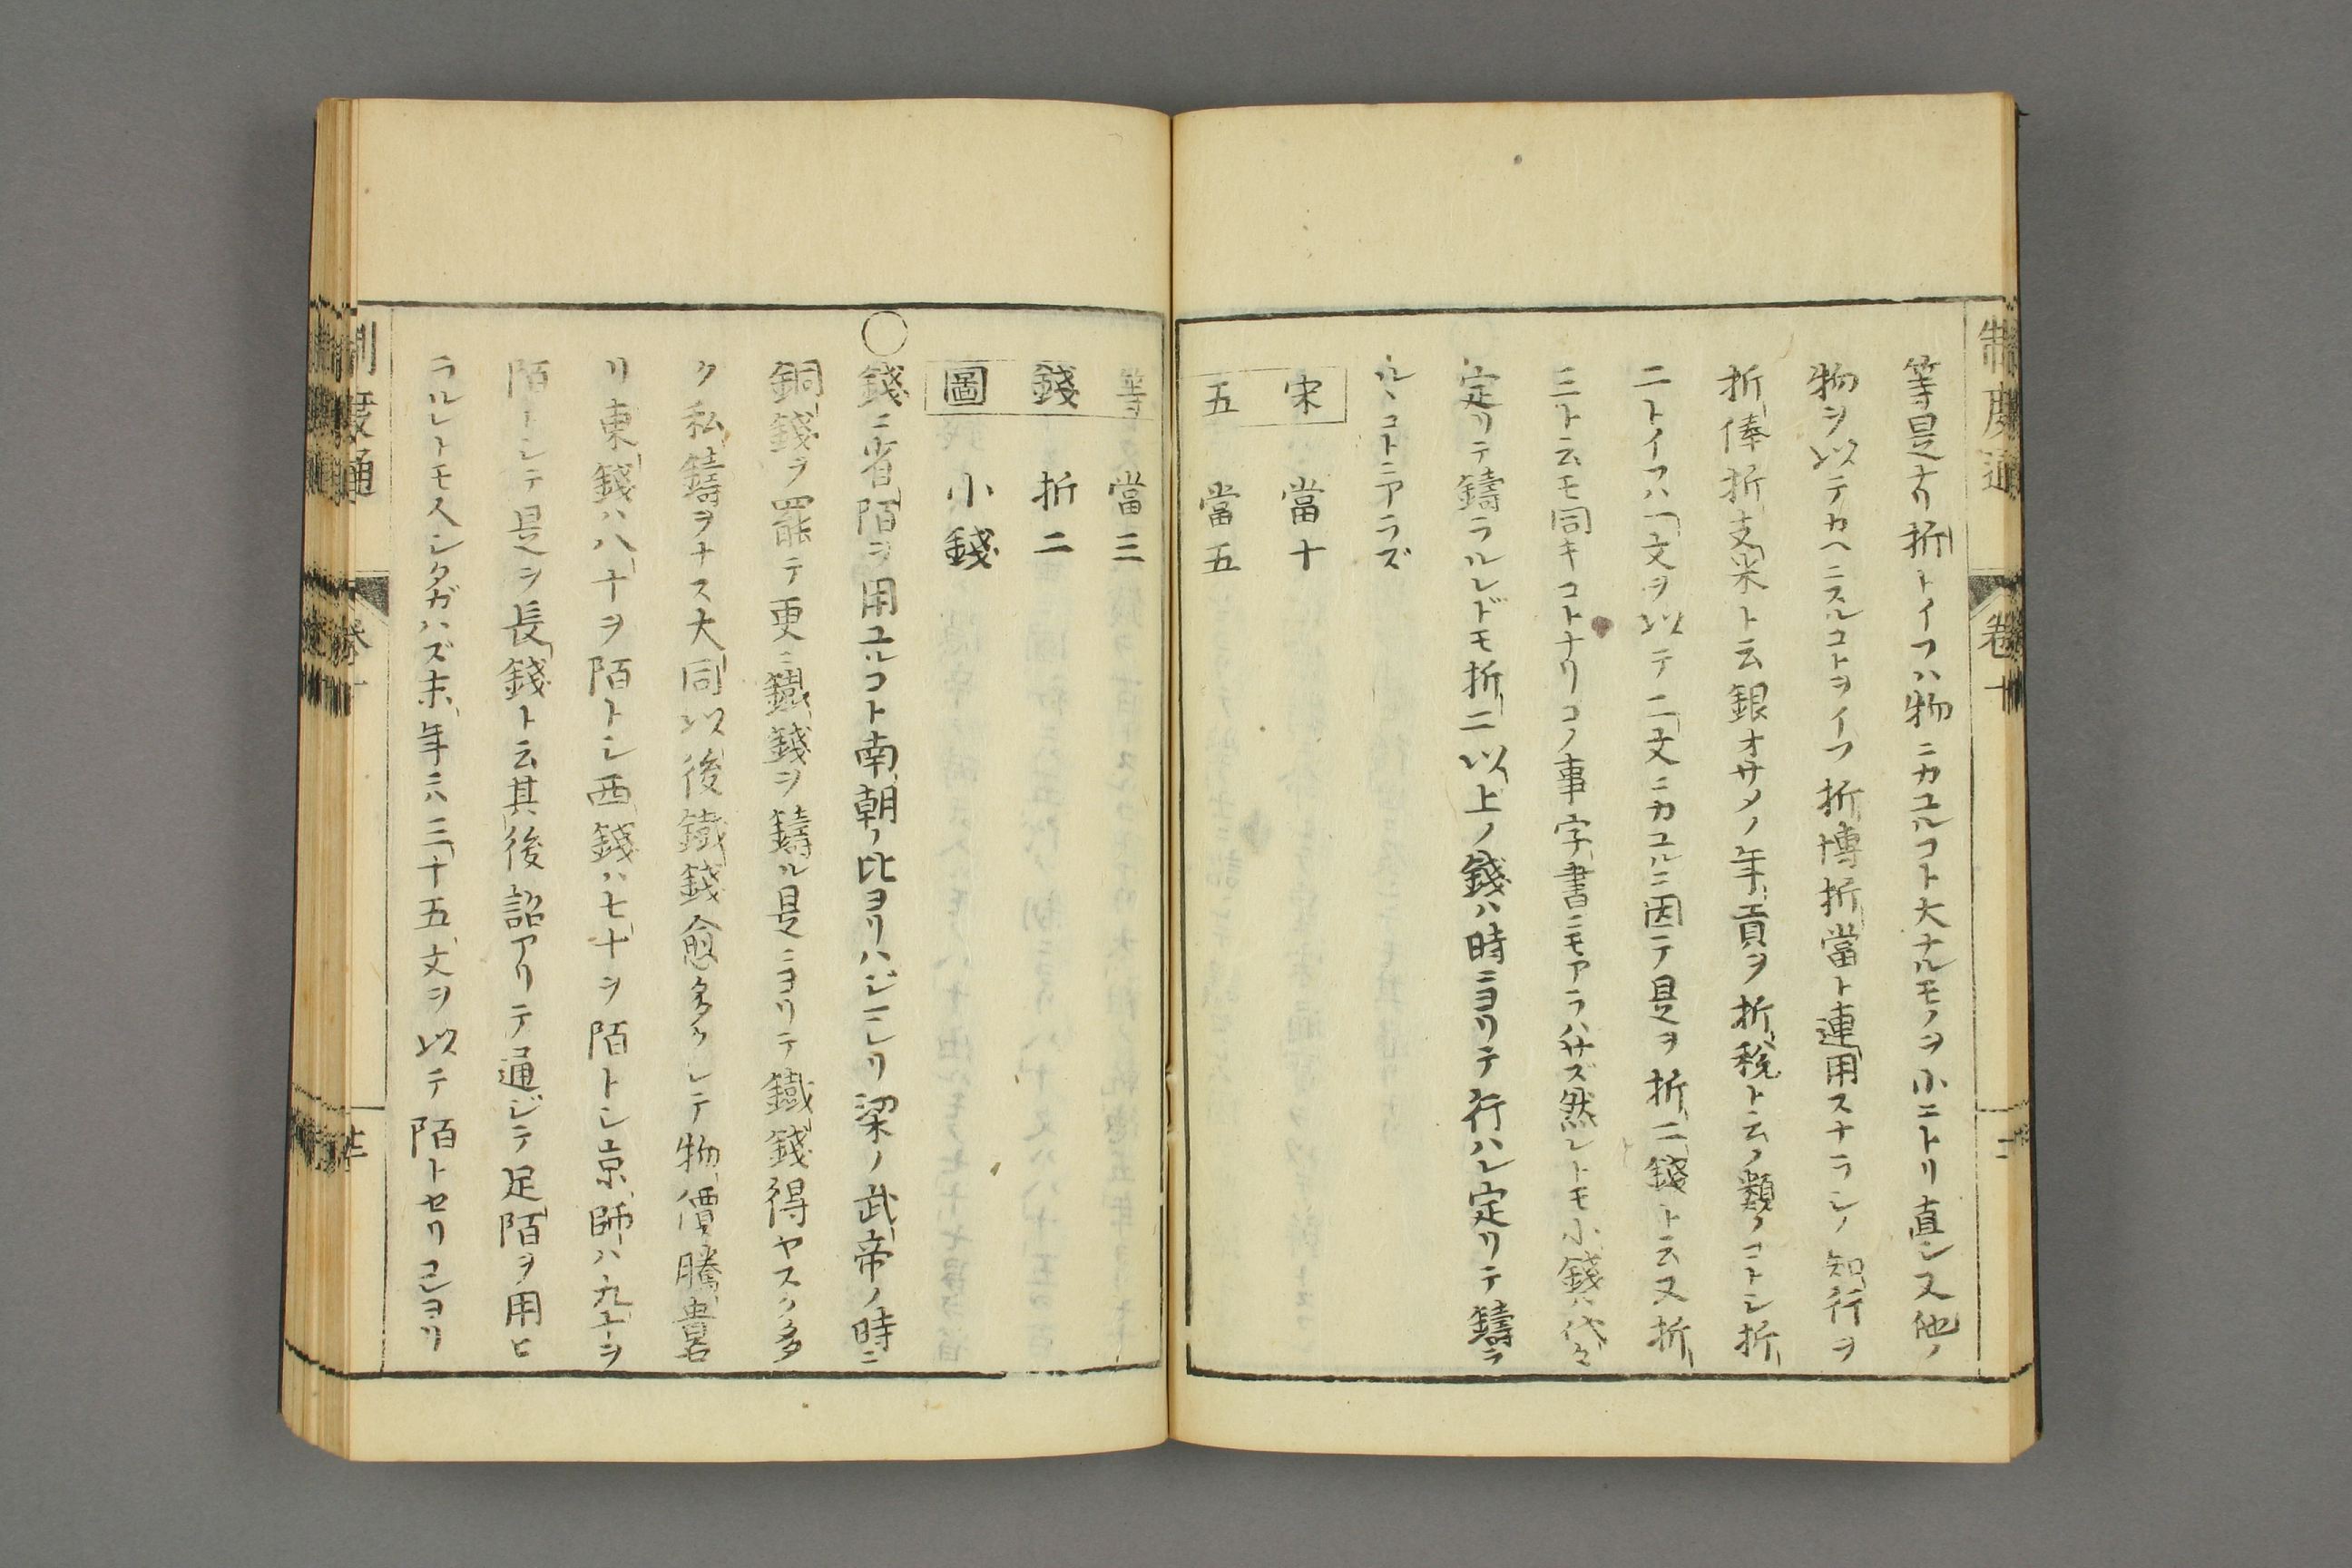 制度通 卷十
等是ナリ折トイフハ物ニカユルコト大ナルモノヲ小ニトリ直シ又他ノ
物ヲ以テカヘニスルコトヲイフ折博折當ト連用スナラシノ知行ヲ
折俸折支米ト云銀オサメノ年貢ヲ折税ト云ノ類ノコトシ折
二トイフハ一文ヲ以テ二文ニカユルニ因テ是ヲ折二錢ト云又折
三ト云モ同キコトナリコノ事字書ニモアラハサズ然レトモ小錢ハ代々
定リテ鑄ラルレドモ折二以上ノ錢ハ時ニヨリテ行ハレ定リテ鑄ラ
ルヽコトニアラズ
宋 當十
五 當五
等 當三
錢 折二
圖 小錢
〇錢ニ省陌ヲ用ユルコト南朝ノ比ヨリハジマレリ梁ノ武帝ノ時ニ
銅錢ヲ罷テ更ニ鐵錢ヲ鑄ル是ニヨリテ鐵錢得ヤスク多
ク私鑄ヲナス大同以後鐵錢愈多クシテ物價騰貴
リ東錢ハ八十ヲ陌トシ西錢ハ七十ヲ陌トシ京師ハ九十ヲ
陌トシテ是ヲ長錢ト云其後詔アリテ通ジテ足陌ヲ用ヒ
ラルレトモ人シタガハズ末年ニハ三十五文ヲ以テ陌トセリコレヨリ
制度通 卷十